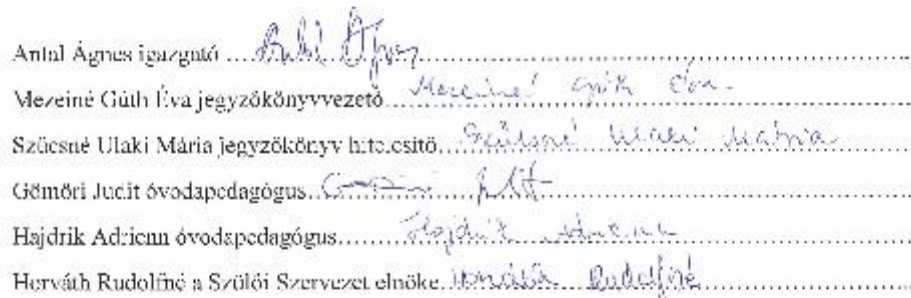 Antal Ágnes igazgató .....Antal Ágnes.....
Mezeiné Gúth Éva jegyzőkönyvvezető Mezeiné Gúth Éva
Szűcsné Ulaki Mária jegyzőkönyv hitelesítő...Szűcsné Ulaki Mária.....
Gömöri Judit óvodapedagógus..Gömöri Judit.....
Hajdrik Adrienn óvodapedagógus......Hajdrik Adrienn.....
Horváth Rudolfné a Szülői Szervezet elnöke..Horváth Rudolfné.....